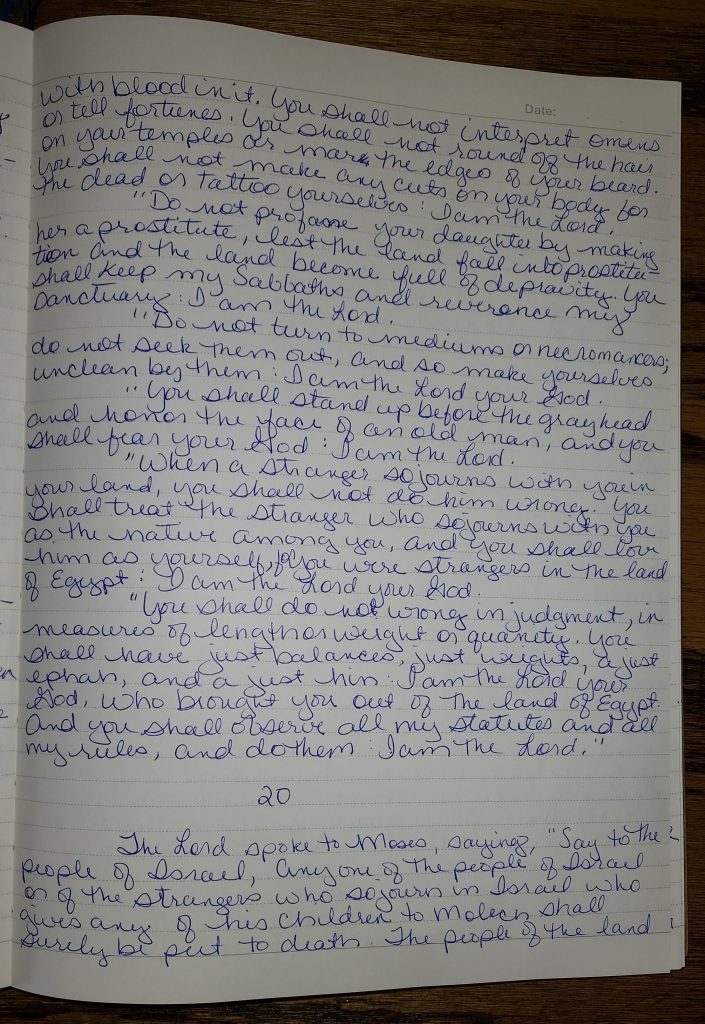 Date:
with blood in it. You shall not interpret omens
or tell fortunes. You shall not round off the hair
on your temples or mark the edges of your beard.
You shall not make any cuts on your body for
the dead or tattoo yourselves: I am the Lord.
"Do not profane your daughter by making
her a prostitute, lest the land fall into prostitu-
tion and the land become full of depravity. You
shall keep my Sabbaths and reverence my
sanctuary: I am the Lord.
"Do not turn to mediums or necromancers;
do not seek them out, and so make yourselves
unclean by them: I am the Lord your God.
"You shall stand up before the gray head
and honor the face of an old man, and you
shall fear your God: I am the Lord.
"When a stranger sojourns with you in
your land, you shall not do him wrong. You
shall treat the stranger who sojourns with you
as the native among you, and you shall love
him as yourself, for you were strangers in the land
of Egypt: I am the Lord your God.
"You shall do no wrong in judgment, in
measures of length or weight or quantity. You
shall have just balances, just weights, a just
ephah, and a just hin: I am the Lord your
God, who brought you out of the land of Egypt.
And you shall observe all my statutes and all
my rules, and do them: I am the Lord."
20
The Lord spoke to Moses, saying, "Say to the
people of Israel, Any one of the people of Israel
or of the strangers who sojourn in Israel who
gives any of his children to Molech shall
surely be put to death. The people of the land